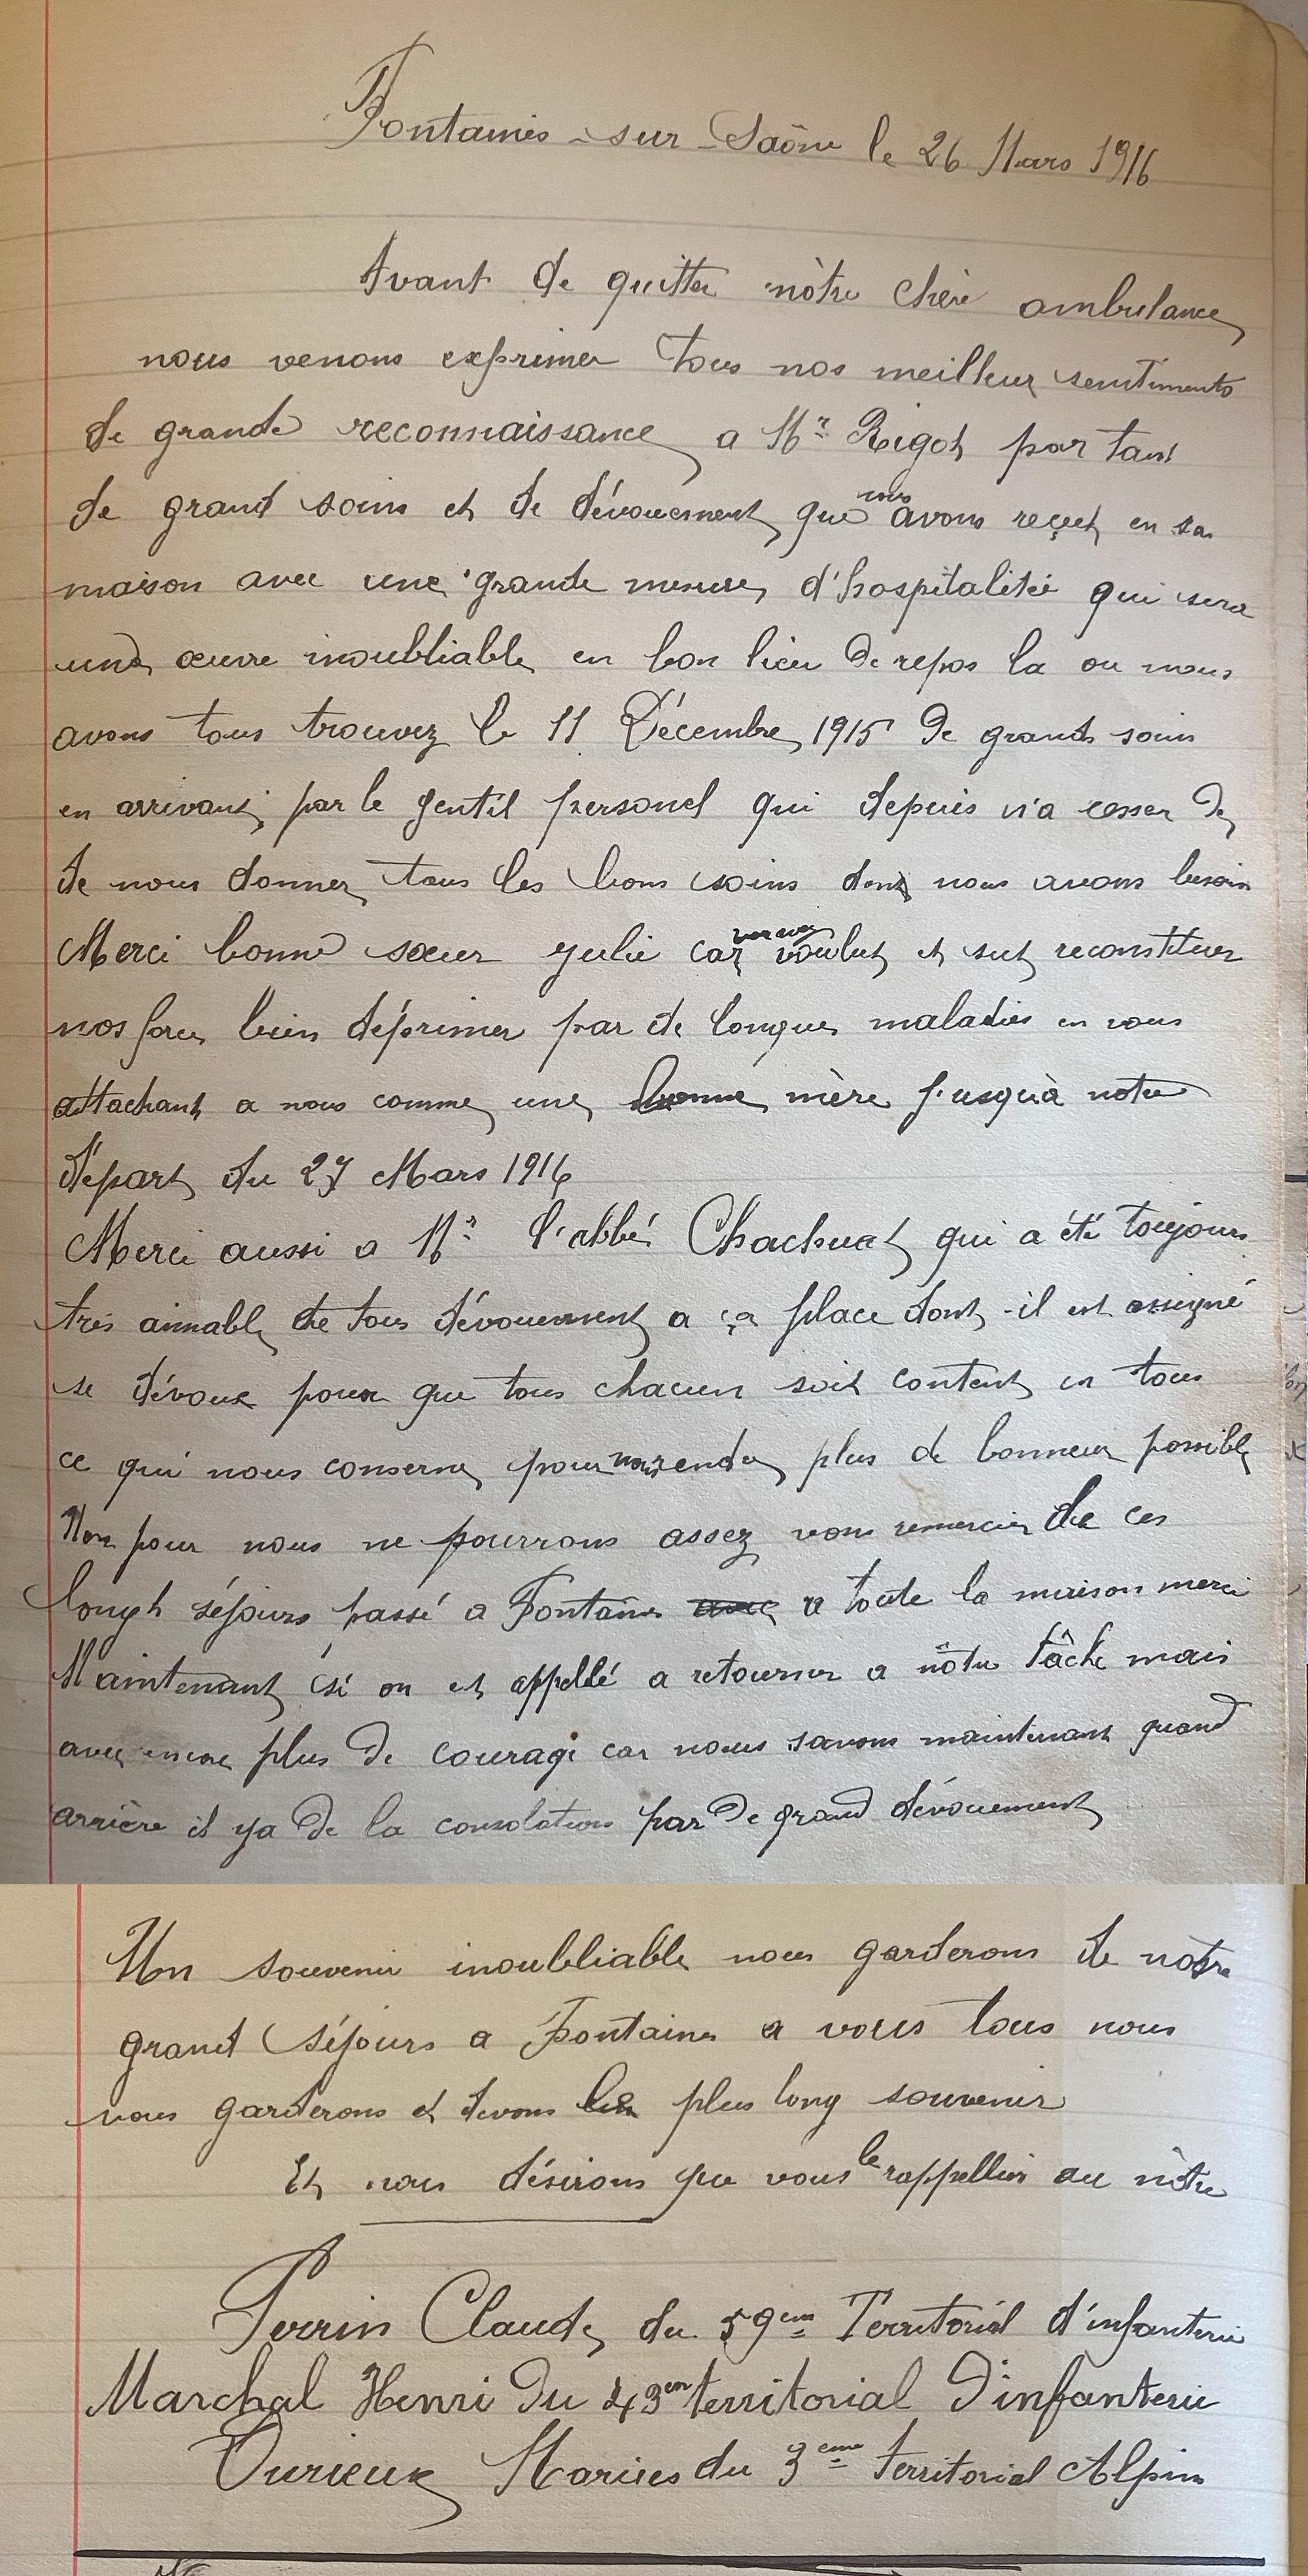 Fontaines-sur-Saône le 26 Mars 1916
Avant de quitter nôtre chère ambulance
nous venons exprimer tous nos meilleur sentiments
de grande reconnaissance a Mr Rigot par tant
de grand soins et de dévouement que nous avons reçut en sa
maison avec une grande mesure d'hospitalitée qui sera
une œuvre inoubliable en bon lieu de repos la ou nous
avons tous trouvez le 11 Décembre 1915 de grands soins
en arrivant, par le gentil personel qui depuis n'a cesser de
de nous donner tous les bons soins dont nous avons besoin
Merci bonne sœur Julie car vous avez voulut et sut reconstituer
nos forces bien déprimer par de longues maladies en vous
attachant a nous comme une bonne mère jusqu'à notre
départ du 27 Mars 1916
Merci aussi a Mr l'abbé Chachuat qui a été toujours
très aimable de tous dévouement a ça place dont-il est assigné
se dévoue pour que tous chacun soit content en tous
ce qui nous conserne pour nous rendre plus de bonneur possible
Non pour nous ne pourrons assez vous remercier de ces
longt séjours passé a Fontaines a toute la maison merci
Maintenant si on est appellé a retourner a nôtre tâche mais
avec encore plus de courage car nous savons maintenant quand
arrière il ya de la consolation par de grand dévouement
Un souvenir inoubliable nous garderons de notre
grand séjours a Fontaines a vous tous nous
vous garderons et devons le plus long souvenir
Et nous désirons que vous le rappellier au nôtre
Perrin Claude du 59em Territorial d'infanterie
Marchal Henri du 43em territorial d'infanterie
Durieux Marius du 3eme territorial Alpin